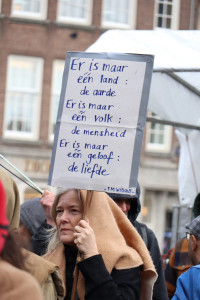 Er is maar
één land :
de aarde
Er is maar
één volk :
de mensheid
Er is maar
één geloof :
de liefde